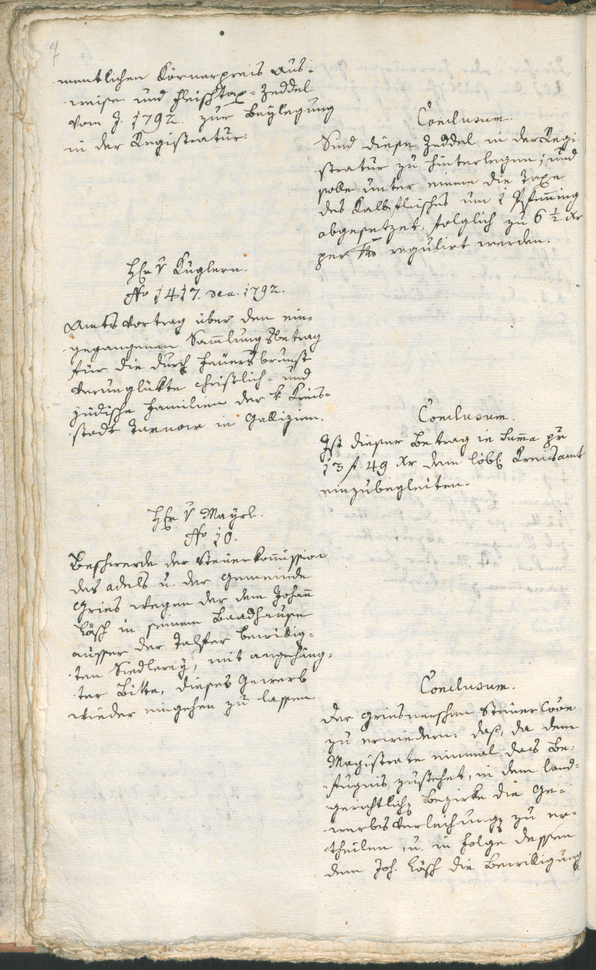 mentlichen Körnerpreis aus-
weise und Fleischtax-Zeddel
vom J. 1792. zur Beylegung
in der Registratur.
Conclusum.
Sind diese Zeddel in der Regi-
stratur zu hinterlegen; und
seye unter einem die Taxe
des Kalbfleisches um 1 Pfenning
abgesetzet, folglich zu 6 ½ xr
per regulirt werden.
Hr v Kuglern.
No 1417. 1792.
Amts Vortrag über den ein-
gegangenen Sam̄lungsbetrag
für die durch Feuersbrunst
verunglükte christlich- und
jüdische Familien der k Kreis-
stadt Tarnow in Gallizien.
Conclusum.
Ist dieser Betrag in Summa pr
13 f 49 xr dem löbl Kreisamt
einzubegleiten.
Hr v Mayrl.
No 10.
Beschwerde der Steuerkom̄ission
des Adels u. der Gemeinde
Gries wegen der dem Johañ
Lösch in seinem Baadhause
ausser der Talfer bewillig-
ten Siedlerey, mit angehäng-
ter Bitte, dieses Gewerb
wieder eingehen zu lassen.
Conclusum.
Der Griesnerschen Steuer
zu erwiedern: daß, da dem
Magistrate einmal das Be-
fugnis zustehet, in dem land-
gerichtlichen Bezirke die Ge-
werbsverleihungen zu er-
theilen u. in Folge dessen
dem Joh. Lösch die Bewilligung